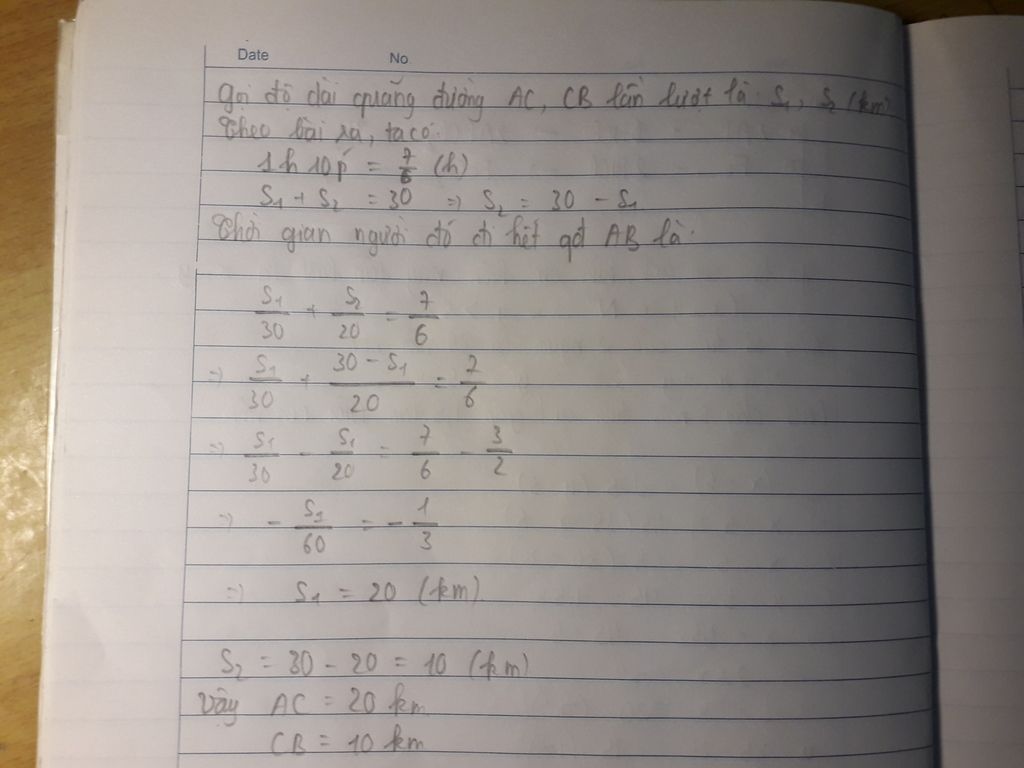 Date No
Gọi độ dài quãng đường AC, CB lần lượt là S₁, S₂ (km)
Theo bài ra, ta có:
1h 10p = 7/6 (h)
S₁ + S₂ = 30 => S₂ = 30 - S₁
Thời gian người đó đi hết qđ AB là:
S₁/30 + S₂/20 = 7/6
=> S₁/30 + (30 - S₁)/20 = 7/6
=> S₁/30 - S₁/20 = 7/6 - 3/2
=> - S₁/60 = - 1/3
=> S₁ = 20 (km)
S₂ = 30 - 20 = 10 (km)
Vậy AC = 20 km
CB = 10 km